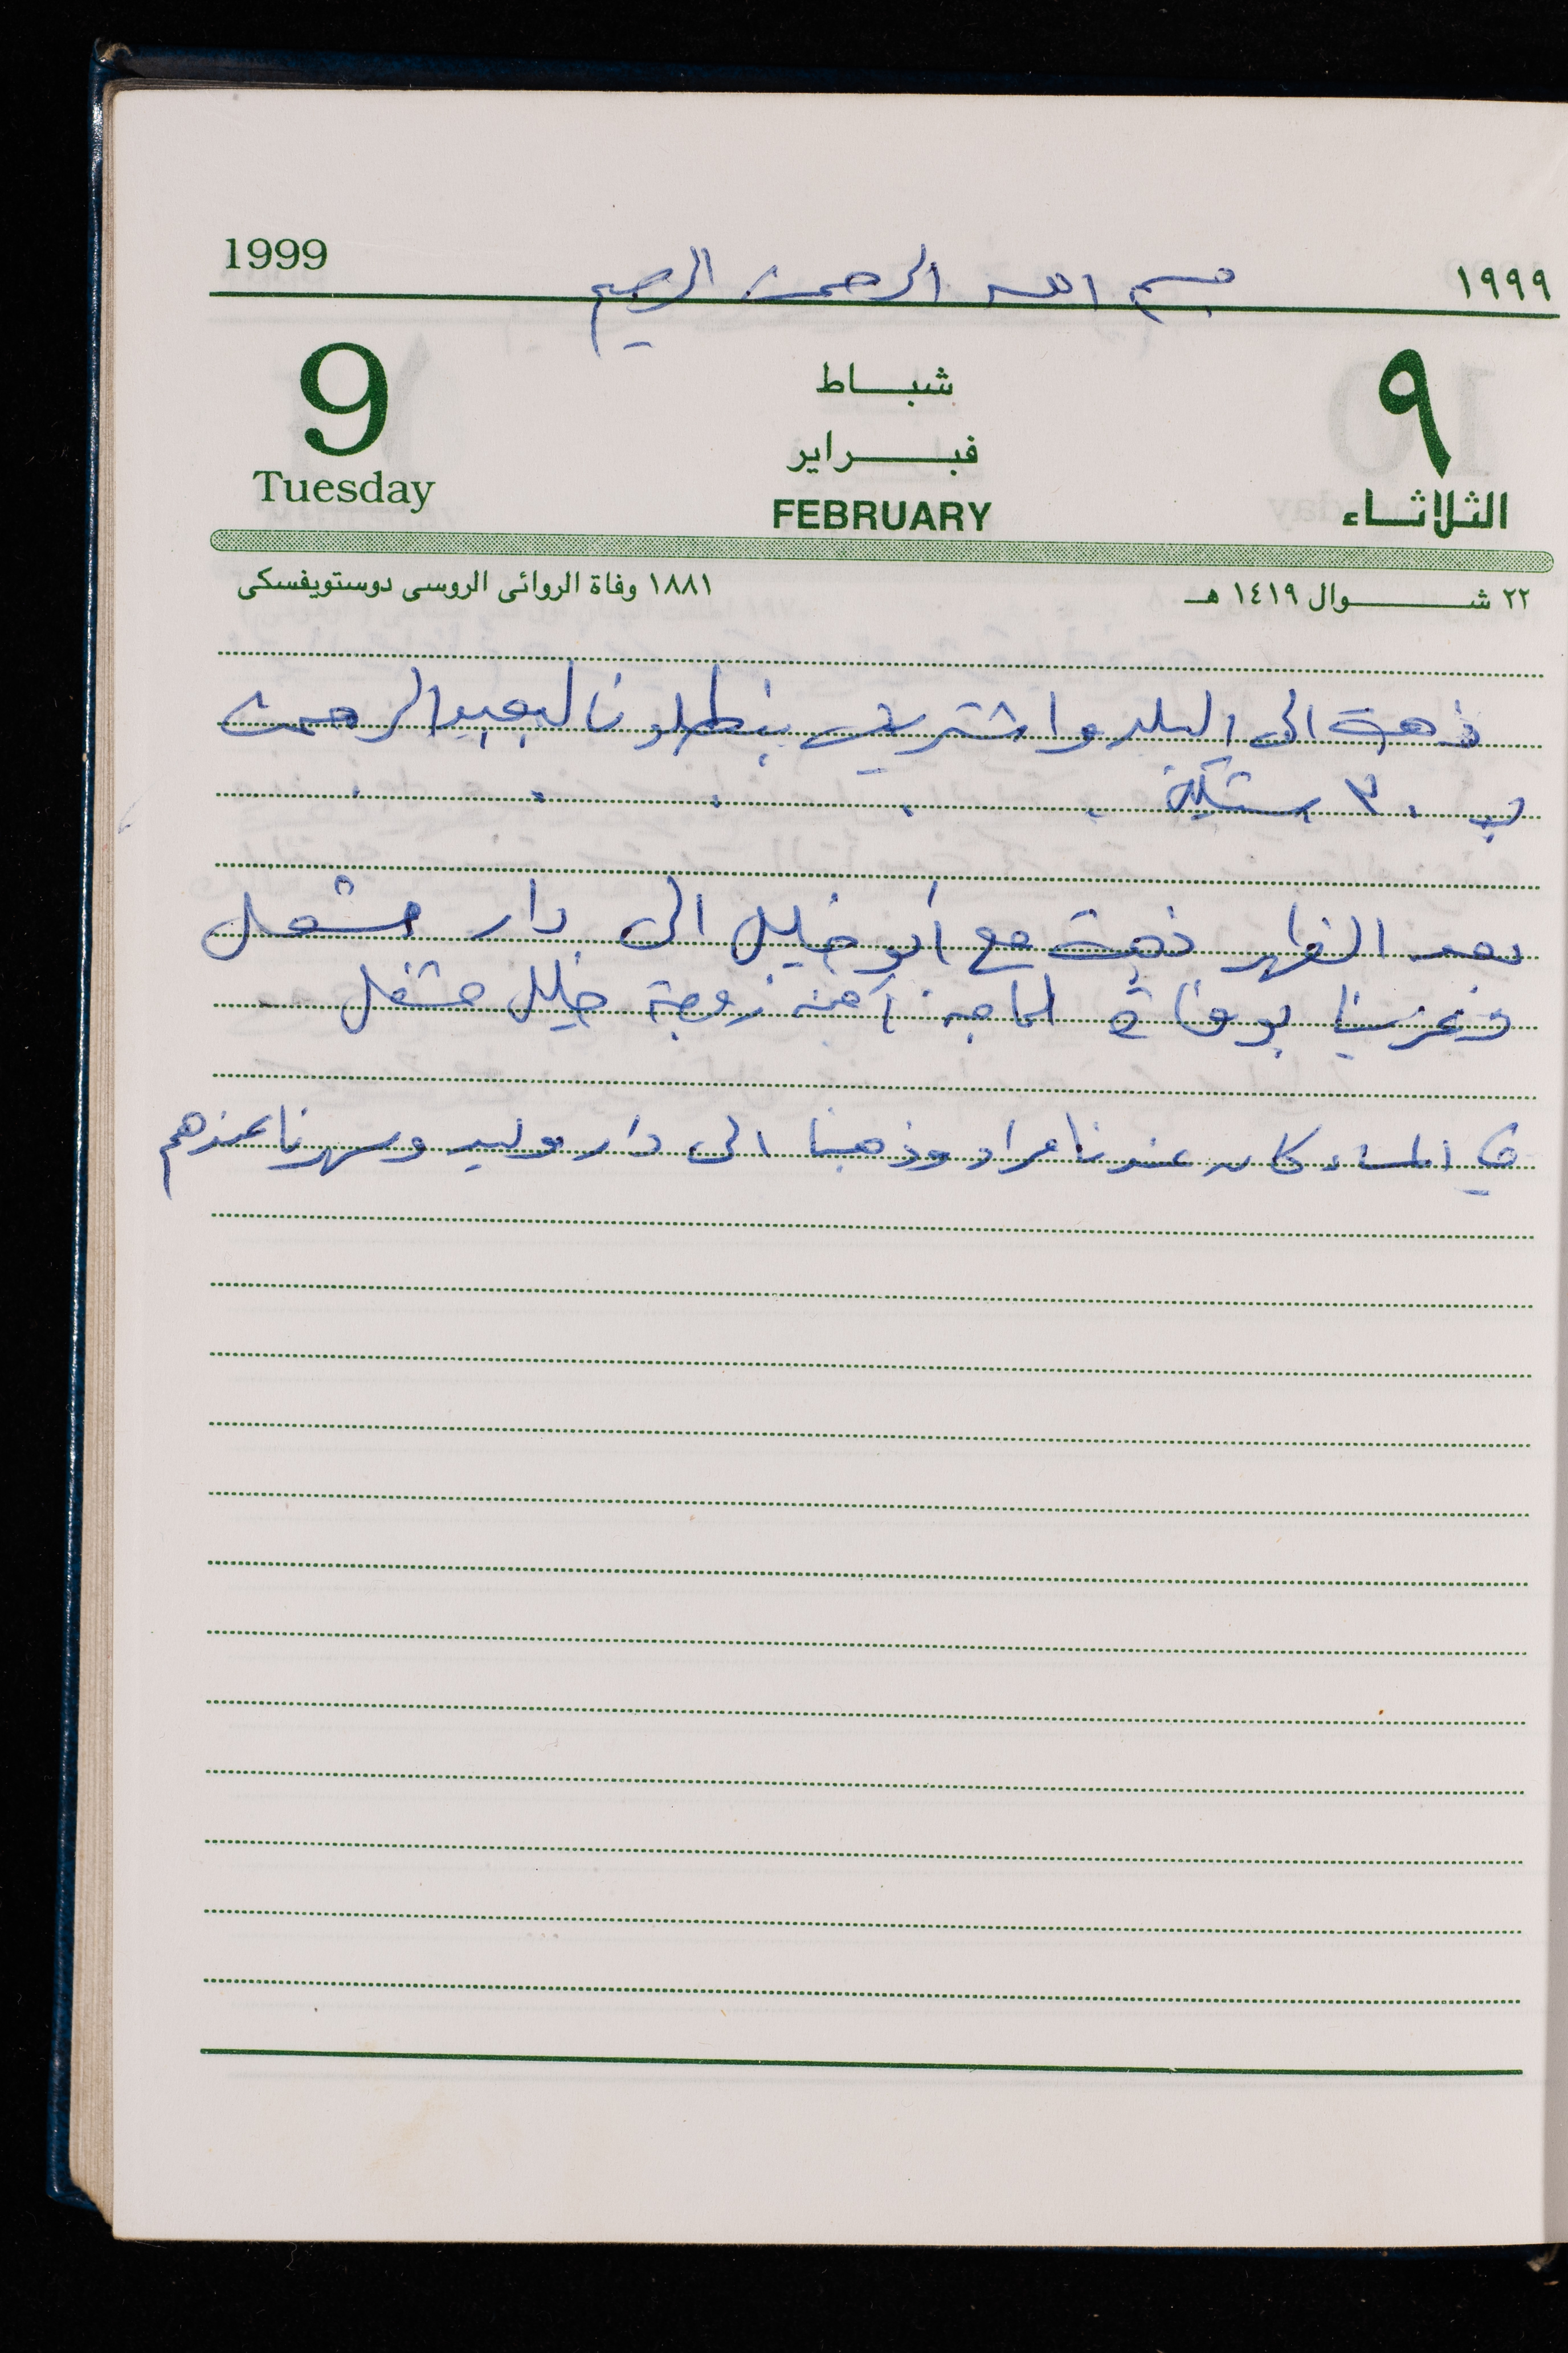 1999 بسم الله الرحمن الرحيم ١٩٩٩
9 شباط ٩
فبراير
Tuesday FEBRUARY الثلاثاء
٢٢ شوال ١٤١٩ هـ ١٨٨١ وفاة الروائى الروسى دوستويفسكى
ذهبت الى البلد واشتريت بنطلونا لعبد الرحمن
ب ٣٠ شيكل
بعد الظهر ذهبت مع أبو خليل الى دار مشعل
وعزينا بوفاة الحاجة آمنه زوجة خليل مشعل
في المساء كان عندنا مراد وذهبنا الى دار وليد وسهرنا عندهم